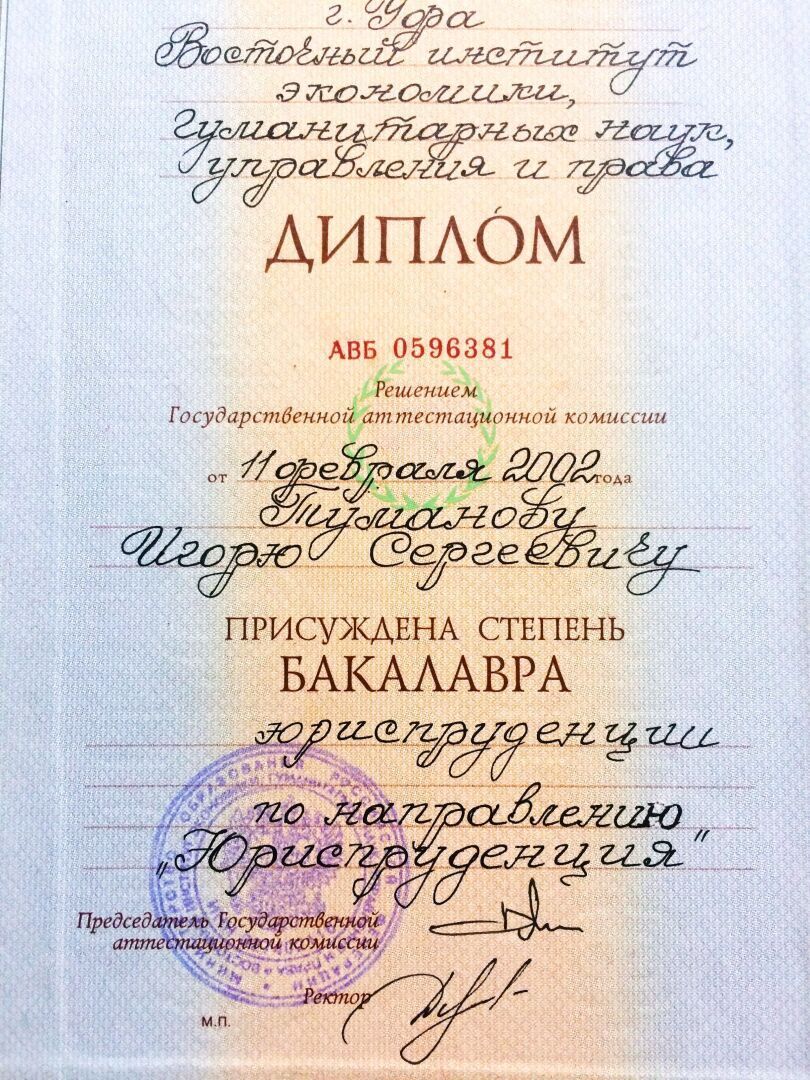 г. Уфа
Восточный институт
экономики,
гуманитарных наук,
управления и права
ДИПЛО́М
АВБ 0596381
Решением
Государственной аттестационной комиссии
от 11 февраля 2002 года
Туманову
Игорю Сергеевичу
ПРИСУЖДЕНА СТЕПЕНЬ
БАКАЛАВРА
юриспруденции
по направлению
„Юриспруденция"
Председатель Государственной
аттестационной комиссии
Ректор
М.П.